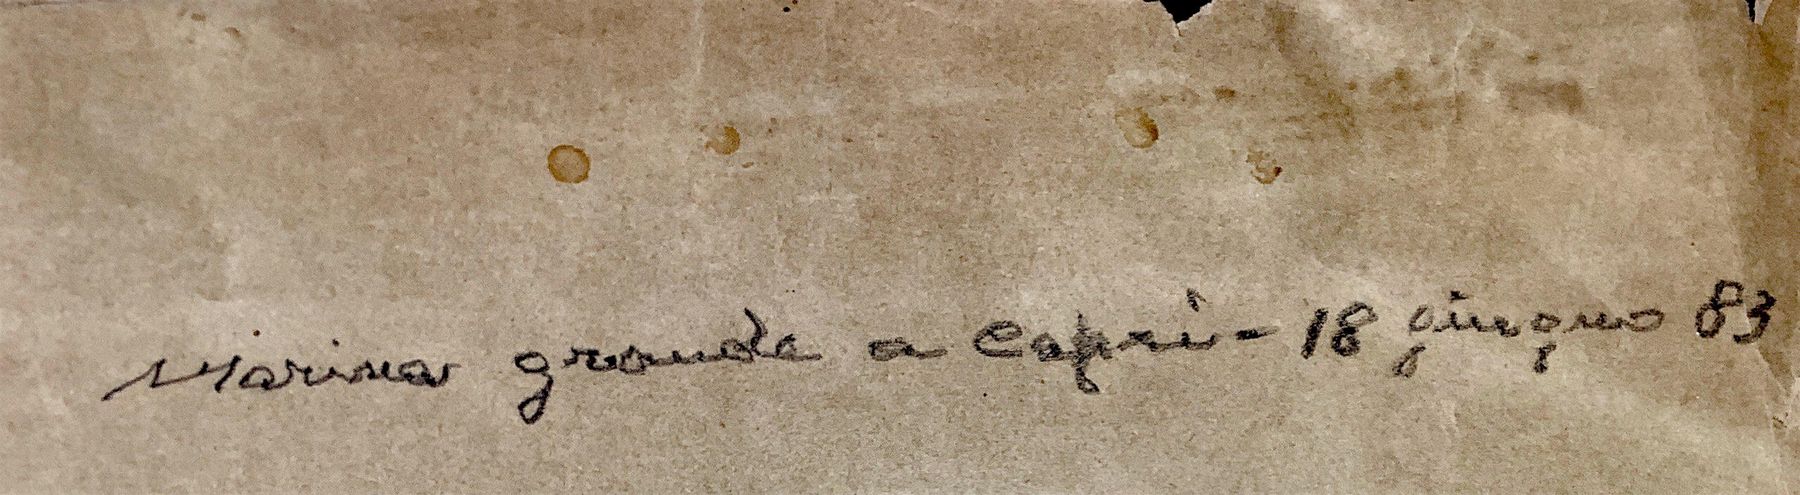 Marina grande a Capri - 18 giugno 83